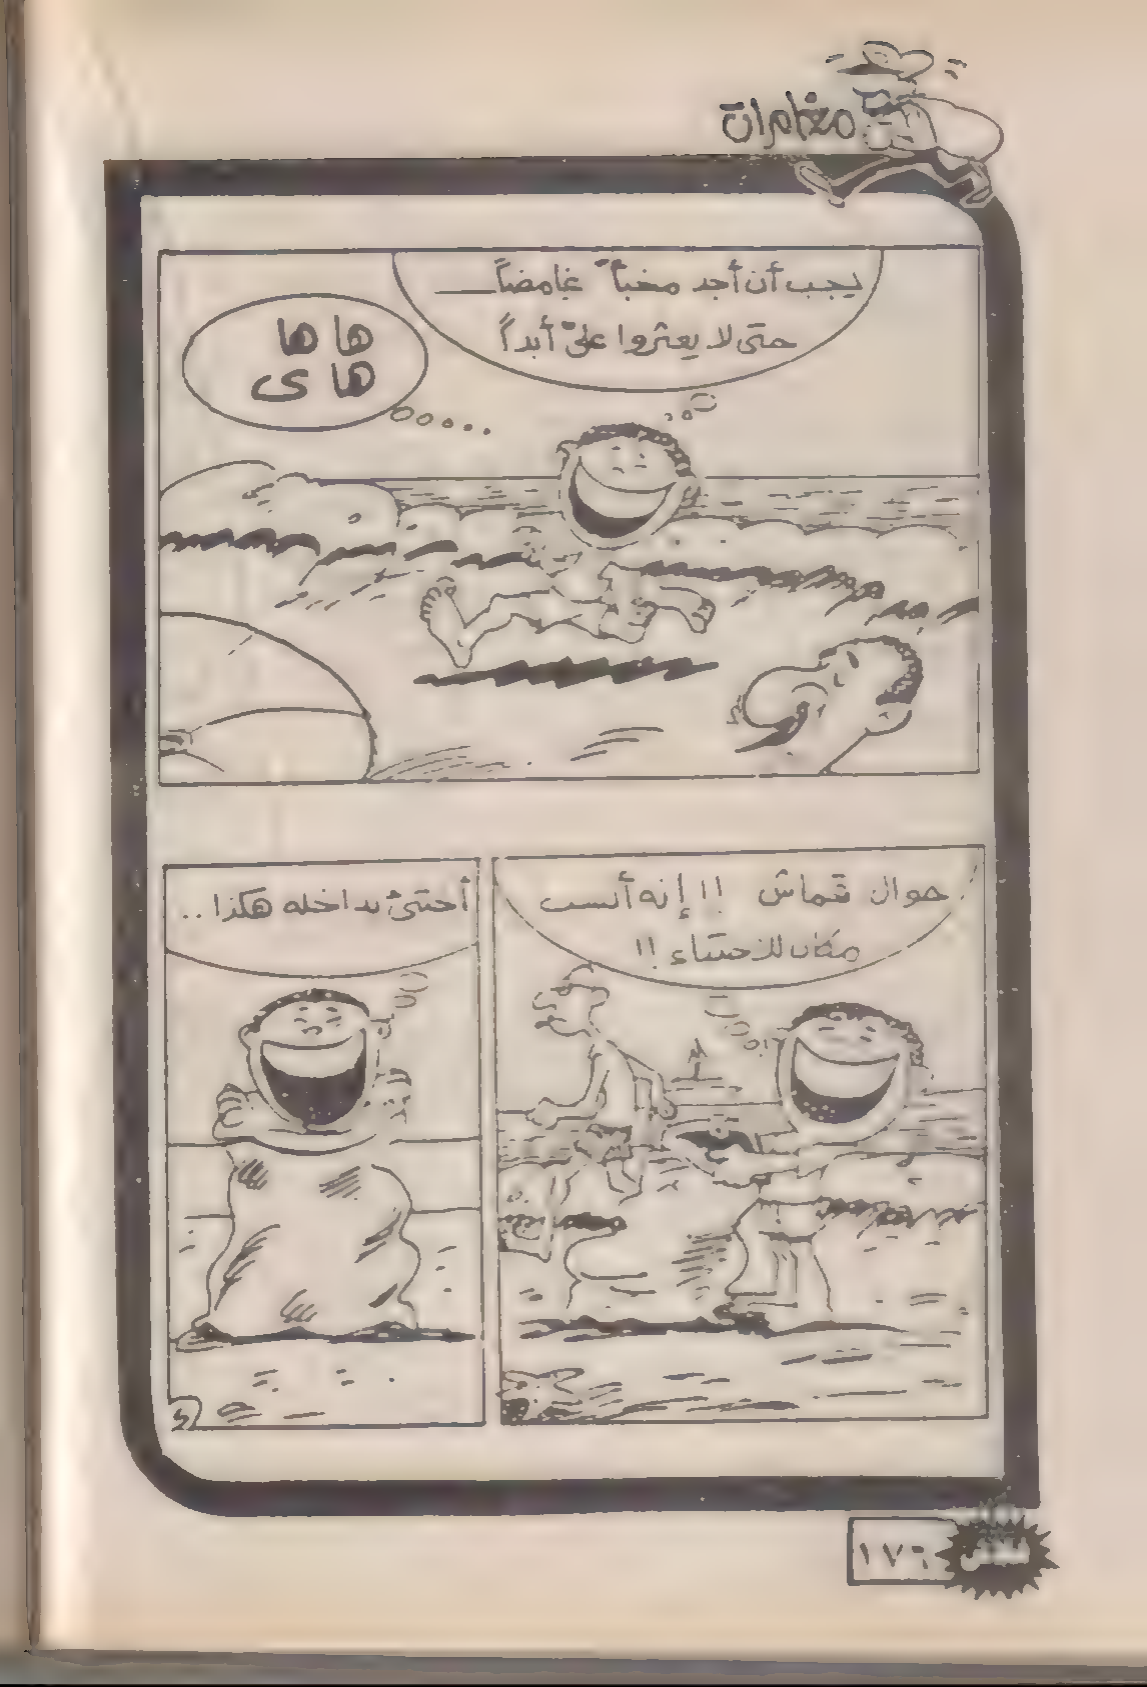 مغامرات
يجب أن أجد مخبأ غامضاً
حتى لا يعثروا علىّ أبداً
ها ها
ها ى
جوال قماش !! إنه أنسب
مكان للاختباء !!
أختبئ بداخله هكذا ..
فلاش
١٧٦